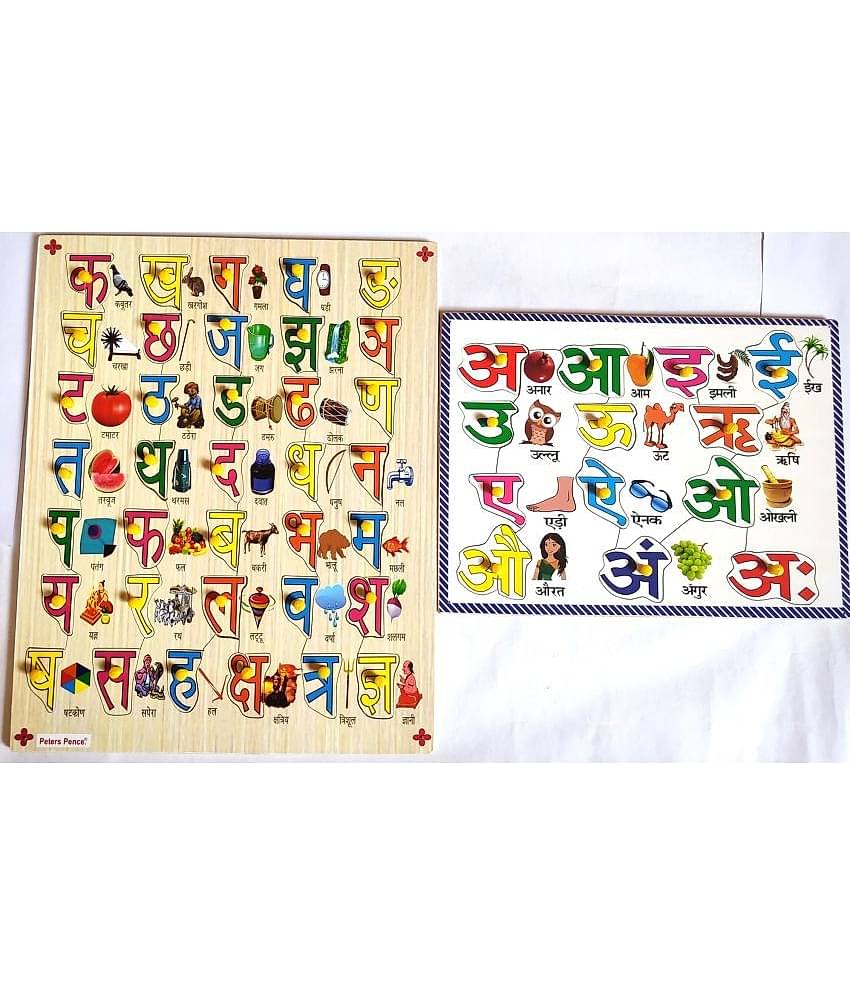 क ख ग घ ङ
कबूतर खरगोश गमला घडी
च छ ज झ ञ
चरखा छड़ी जग झरना
ट ठ ड ढ ण
टमाटर ठठेरा डमरु ढोलक
त थ द ध न
तरबूज थरमस दवात धनुष नल
प फ ब भ म
पतंग फल बकरी भालू मछली
य र ल व श
यज्ञ रथ लट्टू वर्षा शलगम
ष स ह क्ष त्र ज्ञ
षटकोण सपेरा हल क्षत्रिय त्रिशूल ज्ञानी
Peters Pence
अ आ इ ई
अनार आम इमली ईख
उ ऊ ऋ
उल्लू ऊंट ऋषि
ए ऐ ओ
एड़ी ऐनक ओखली
औ अं अः
औरत अंगुर